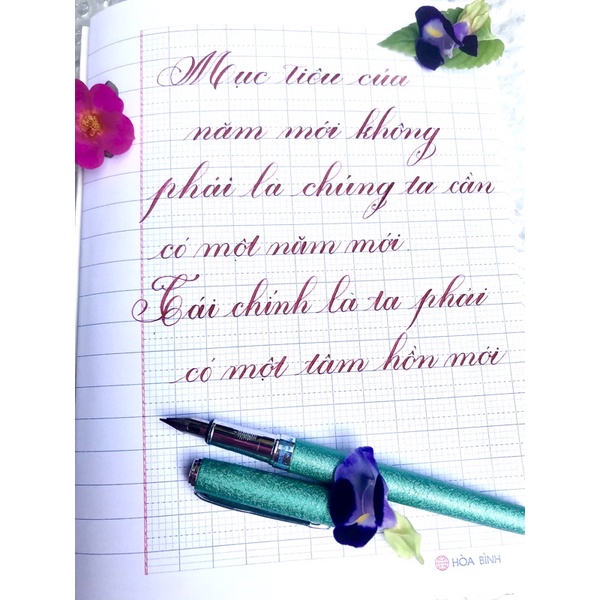 Mục tiêu của
năm mới không
phải là chúng ta cần
có một năm mới.
Cái chính là ta phải
có một tâm hồn mới
HÒA BÌNH